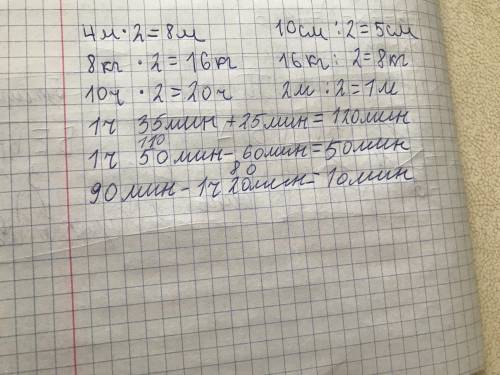 4м · 2 = 8м 10см : 2 = 5см
8кг · 2 = 16кг 16кг : 2 = 8кг
10ч · 2 = 20ч 2м : 2 = 1м
1ч 35мин + 25мин = 120мин
110
1ч 50мин - 60мин = 50мин
80
90мин - 1ч 20мин = 10мин